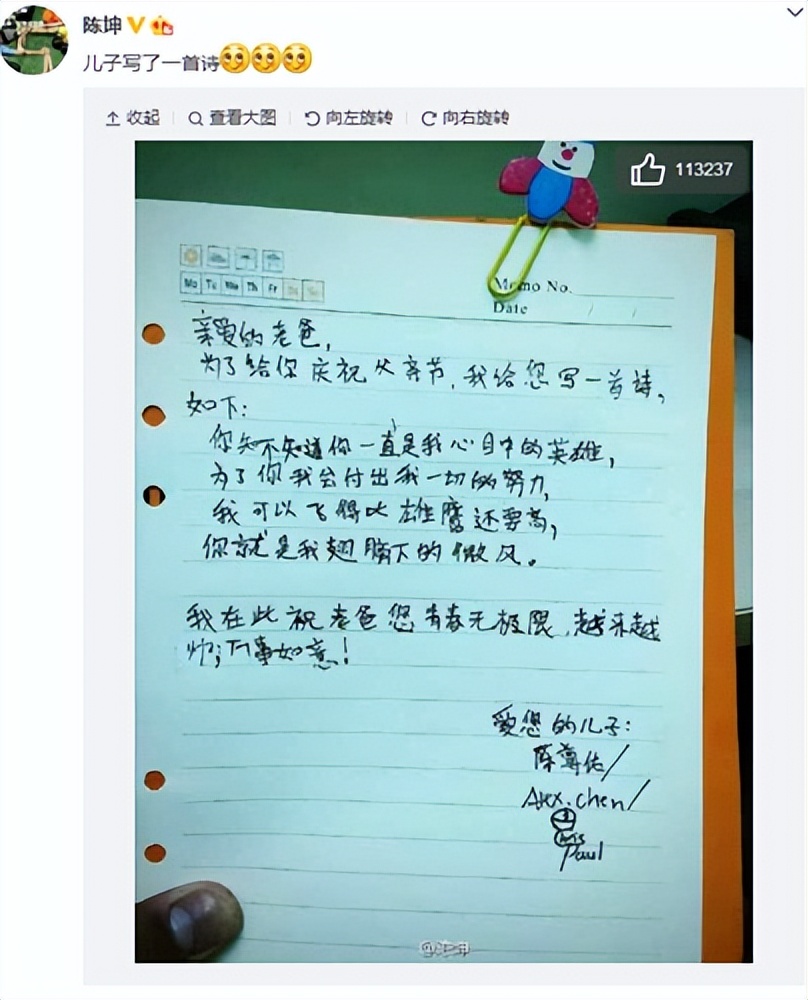 陈坤
儿子写了一首诗
收起 查看大图 向左旋转 向右旋转
113237
Mo Tu We Th Fr Sa Su
Memo No.
Date / /
亲爱的老爸,
为了给你庆祝父亲节,我给您写一首诗,
如下:
你知不知道你一直是我心目中的英雄,
为了你我会付出我一切的努力,
我可以飞得比雄鹰还要高,
你就是我翅膀下的微风。
我在此祝老爸您青春无极限,越来越
帅;万事如意!
爱您的儿子:
陈尊佑/
Alex.chen/
Paul
@陈坤